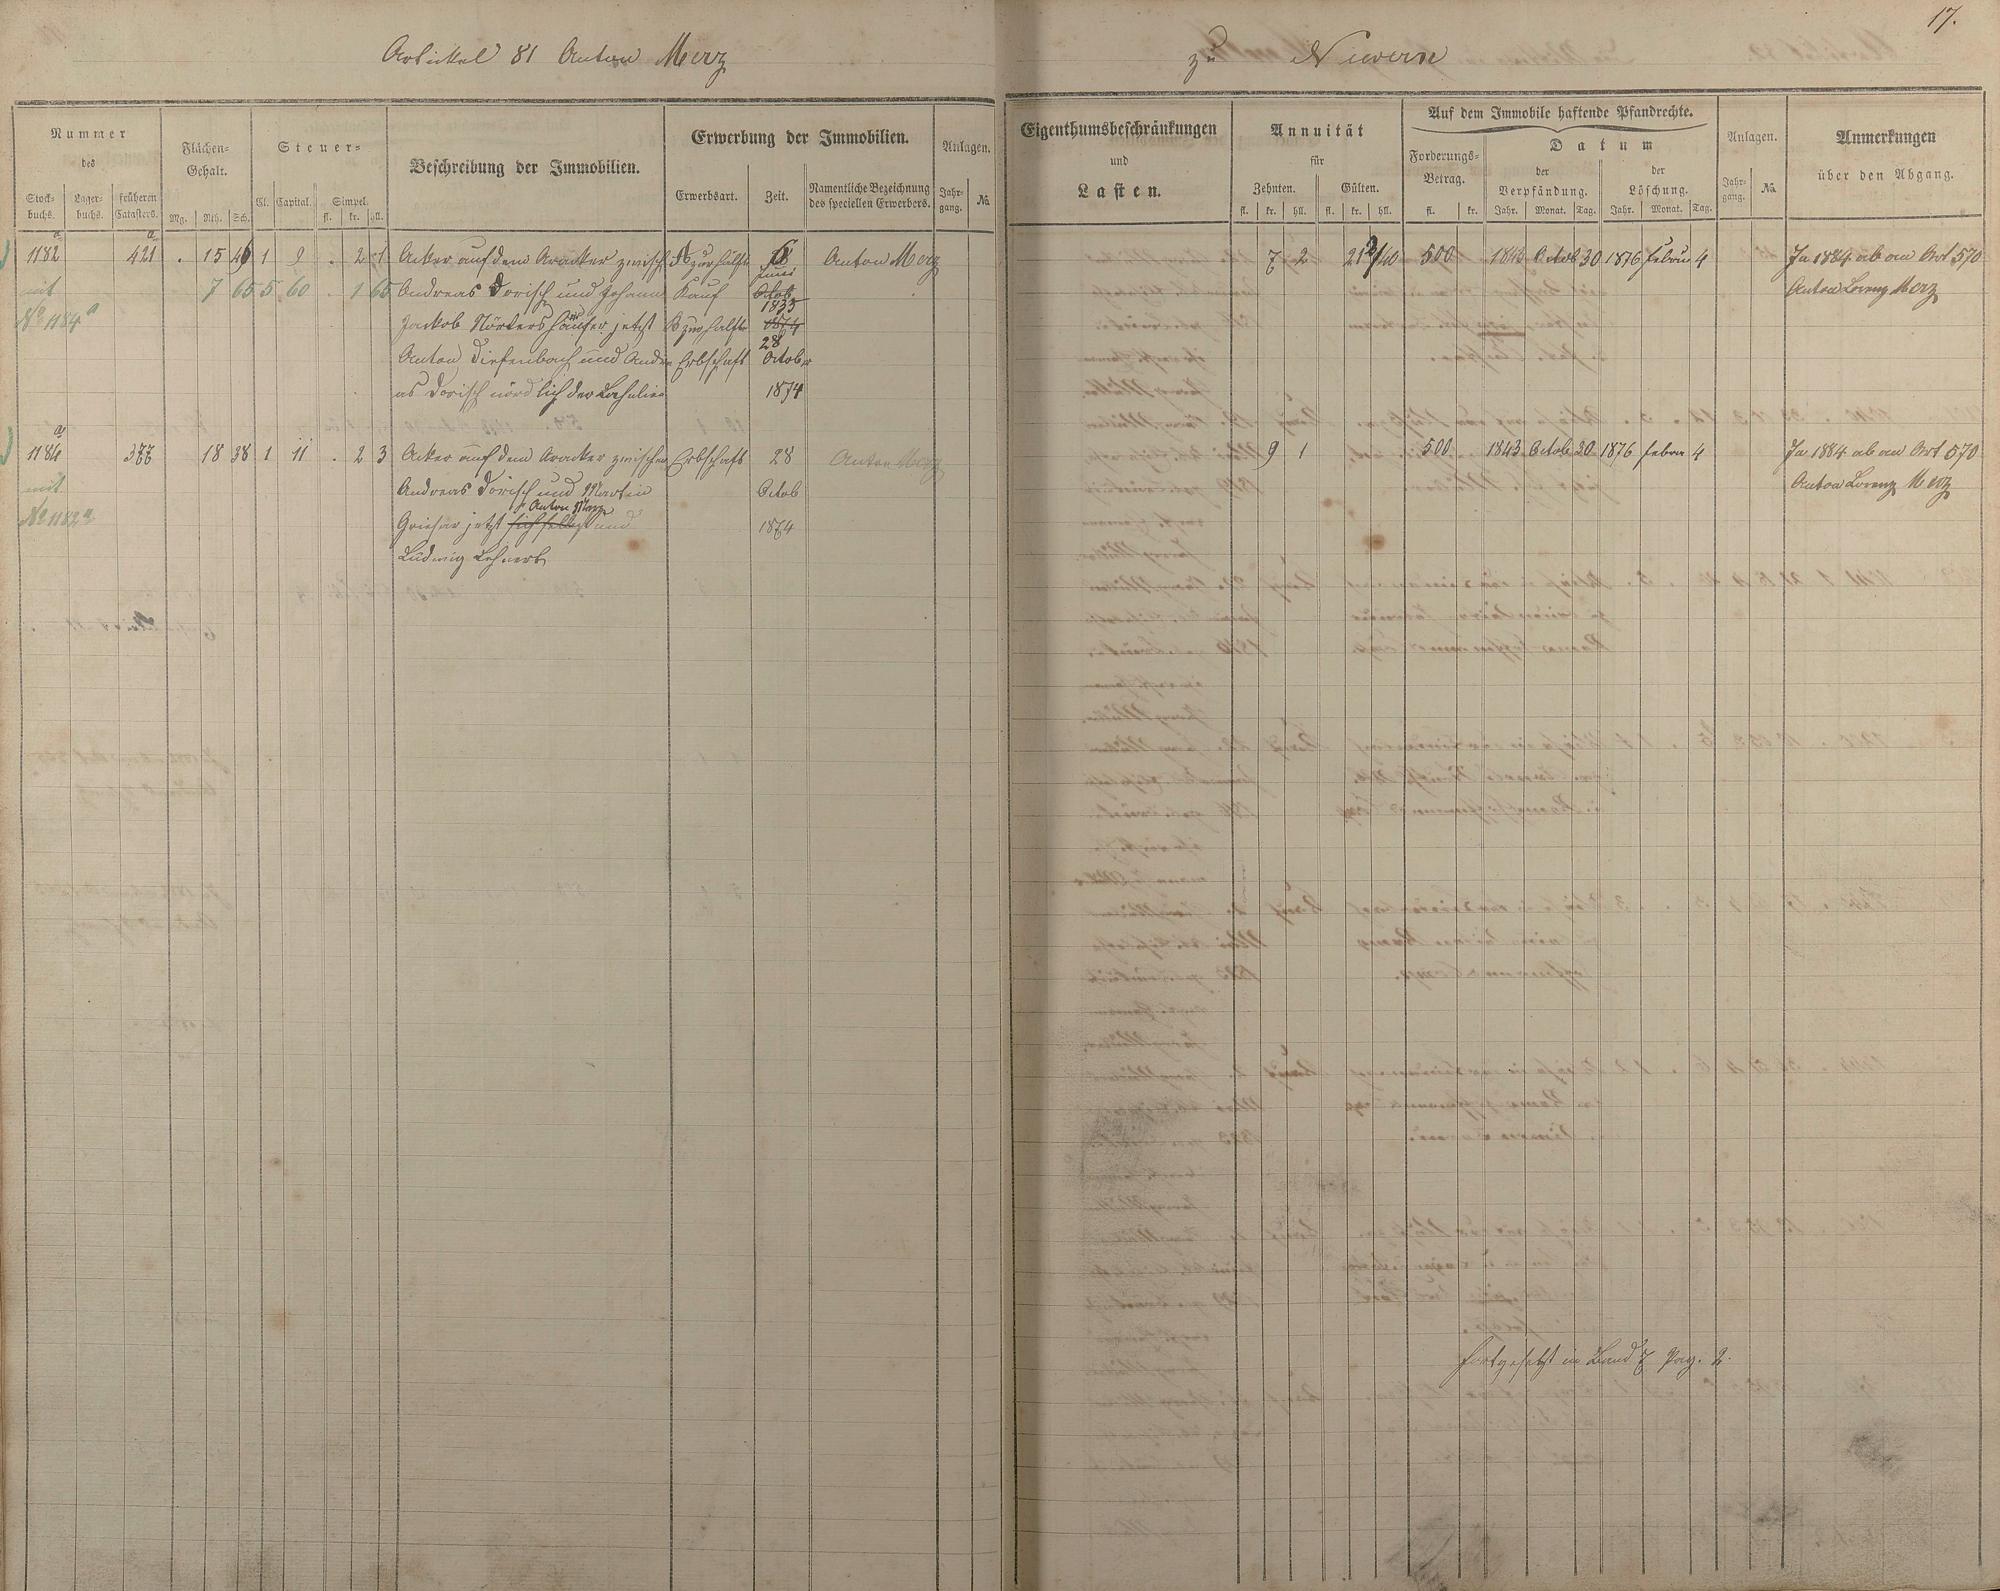 17.
Artickel 81 Anton Merz zu Nievern
Nummer
des
Stock-
buchs.
Lager-
buchs.
früheren
Catasters.
Flächen-
Gehalt.
Mg. Rth. Sch.
Steuer-
Cl. Capital. Simpel.
fl. kr. hll.
Beschreibung der Immobilien.
Erwerbung der Immobilien.
Erwerbsart. Zeit. Namentliche Bezeichnung
des speciellen Erwerbers.
Anlagen.
Jahr-
gang.
No.
Eigenthumsbeschränkungen
und
Lasten.
Annuität
für
Zehnten. Gülten.
fl. kr. hll. fl. kr. hll.
Auf dem Immobile haftende Pfandrechte.
Forderungs-
Betrag.
fl. kr.
Datum
der
Verpfändung.
der
Löschung.
Jahr. Monat. Tag. Jahr. Monat. Tag.
Anlagen.
Jahr-
gang.
No.
Anmerkungen
über den Abgang.
1182 a 421 a . 15 46 1 9 . 2 1 Acker auf dem Aracker zwisch A zur Hälfte 6 Anton Merz 7 2 500 1843 Octob 30 1876 Febru 4 Ja 1884 ab an Art 570
mit 7 65 5 60 . 1 65 Andreas Dorisch und Johann Kauf Juni Octob Anton Lorenz Merz
No 1184 a Jackob Nörtershäuser jetzt B zur Hälfte 1833 1874
Anton Diefenbach und Andre Erbschaft 28 October
as Dorisch nördlich der Bahnlinie 1874
1184 a 377 18 38 1 11 . 2 3 Acker auf dem Aracker zwischen Erbschaft 28 Anton Merz 9 1 500 1843 Octob 30 1876 Febru 4 Ja 1884 ab an Art 570
mit Andreas Dorisch und Martin Octob Anton Lorenz Merz
No 1182 a Griesar jetzt sich selbst Anton Merz und 1874
Ludwig Lehnert
fortgesetzt in Band 7 Pag. 2.